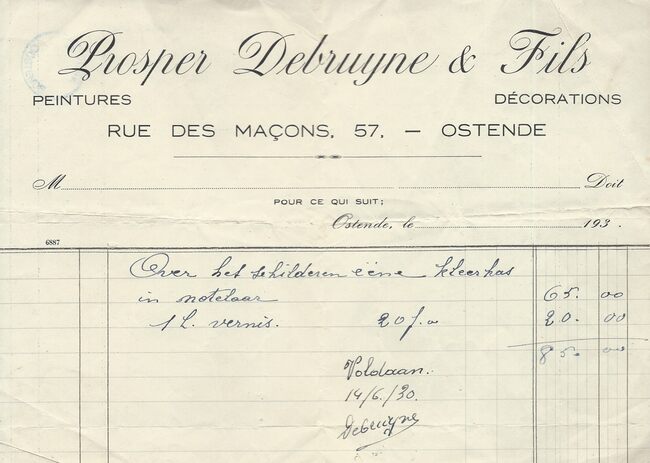 Prosper Debruyne & Fils
PEINTURES DÉCORATIONS
RUE DES MAÇONS, 57, — OSTENDE
M Doit
POUR CE QUI SUIT;
Ostende, le 193 .
6887
Over het schilderen eëne kleerkas
in notelaar 65. 00
1 L. vernis. 20 f. 20. 00
85. 00
Voldaan.
14/6/30.
Debruyne